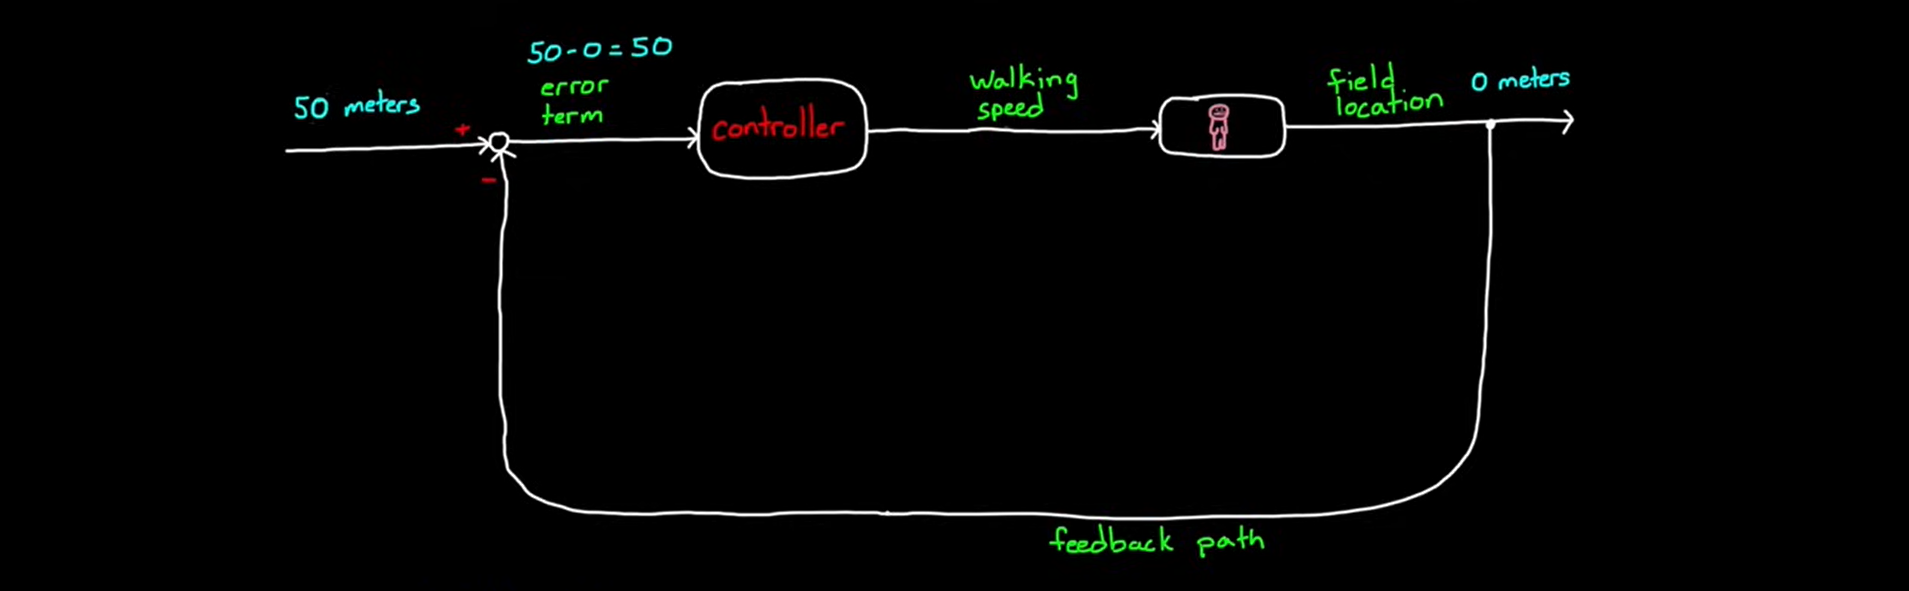 50 meters
+
-
50-0=50
error
term
controller
walking
speed
field
location
0 meters
feedback path